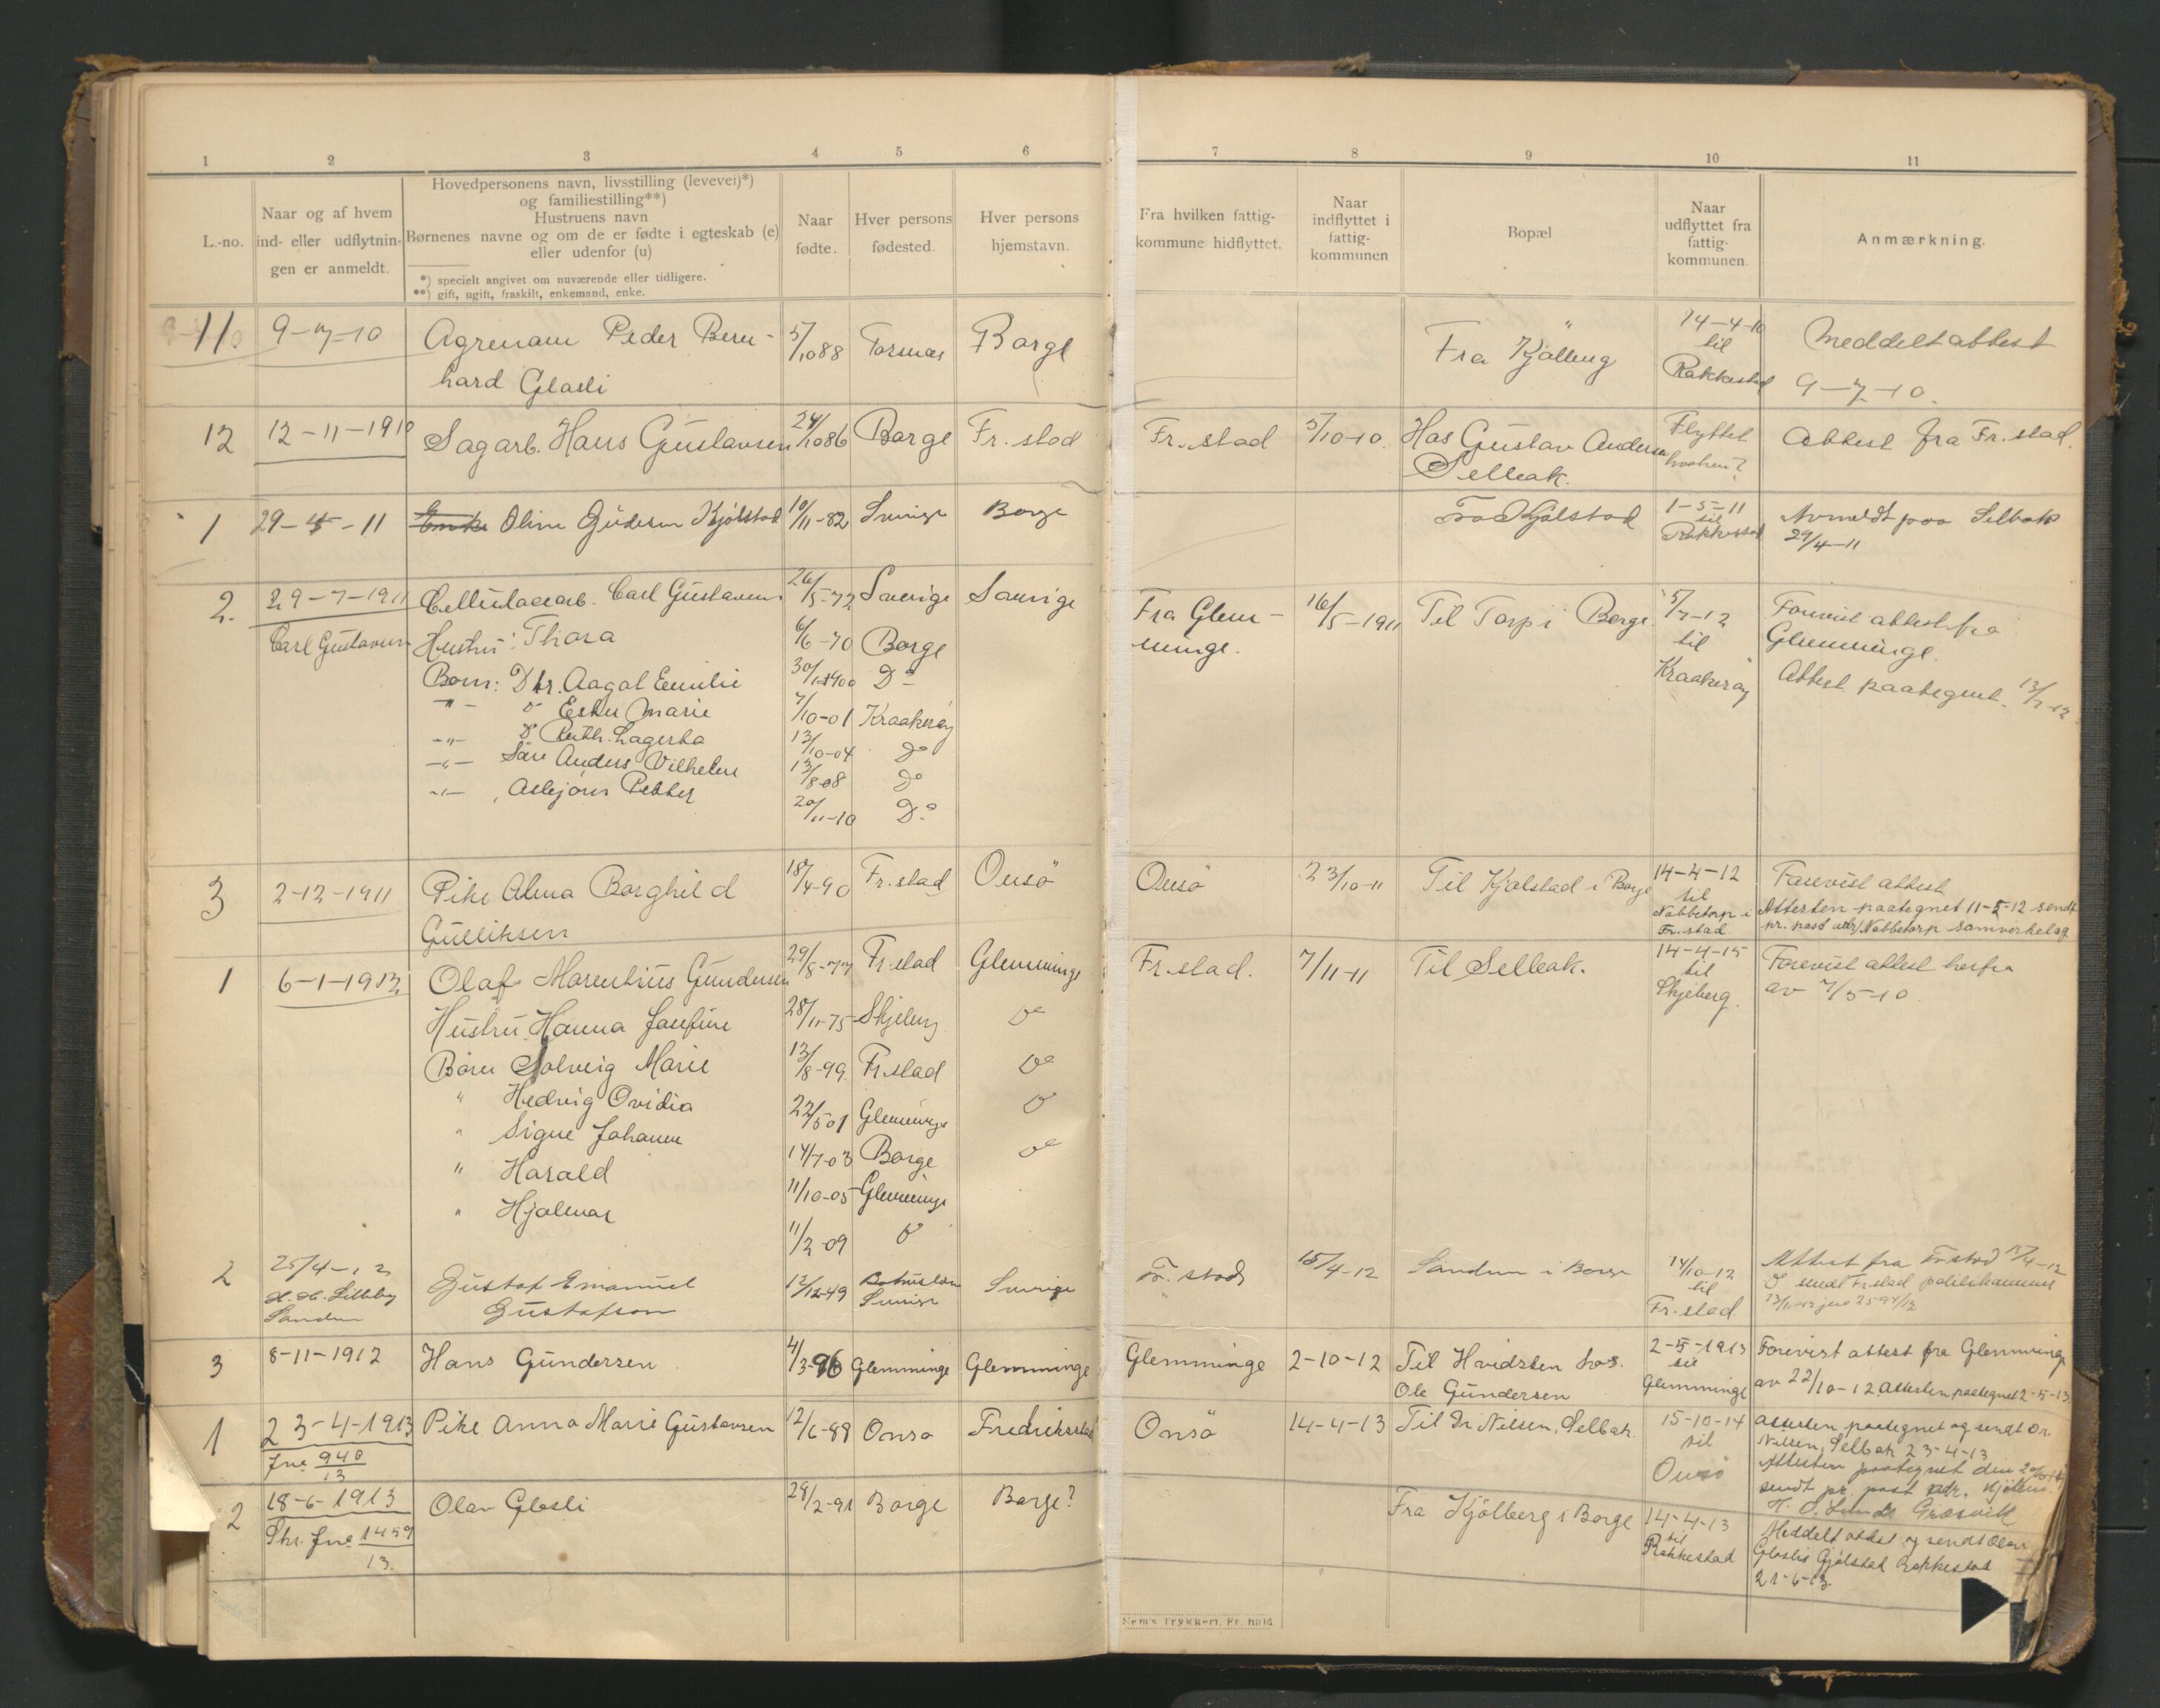 1 2 3 4 5 6 7 8 9 10 11
L.-no.
Naar og af hvem
ind- eller udflytnin-
gen er anmeldt.
Hovedpersonens navn, livsstilling (levevei)*)
og familiestilling**)
Hustruens navn
Børnenes navne og om de er fødte i egteskab (e)
eller udenfor (u)
*) specielt angivet om nuværende eller tidligere.
**) gift, ugift, fraskilt, enkemand, enke.
Naar
fødte.
Hver persons
fødested.
Hver persons
hjemstavn.
Fra hvilken fattig-
kommune hidflyttet.
Naar
indflyttet i
fattig-
kommunen
Bopæl
Naar
udflyttet fra
fattig-
kommunen.
Anmærkning.
11 9-7-10 Peder Bern- 5/10 88 Torsnæs Borge
hard Glosli
Fra Kjölberg
14-4-10
til
Rakkestad
Meddelt attest
9-7-10.
12 12-11-1910 Sagarb. Hans Gustavsen 24/10 86 Borge Fr.stad
Fr.stad 5/10-10. Hos Gustav Andersen
Selleak.
Flyttet
hvorhen?
Attest fra Fr.stad.
1 29-4-11 Enke Oline Kjölstad 10/11-82 Sverige Borge
Fra Kjölstad
1-5-11
til
Rakkestad
Avmeldt paa Selbak
29/4-11
2. 29-7-1911 Cellulosearb. Carl Gustavsen 26/5-72 Sverige Sverige
Carl Gustavsen Hustru: Thora 6/6-70 Borge
Born: Dtr. Aagot Emilie 30/1-1900 Do
-"- Do Ester Marie 7/10-01 Kraakeröy
-"- Do Ruth Lagerta 13/10-04 Do
-"- Sön Anders Vilhelm 13/8-08 Do
-"- Asbjörn Petter 20/11-10 Do
Fra Glem-
minge.
16/5-1911 Til Torp i Borge.
5/7-12
til
Kraakeröy
Forevist attest fra
Glemminge.
Attest paategnet. 13/7-12.
3 2-12-1911 Pike Alma Borghild 18/4-90 Fr.stad Onsö
Gulliksen
Onsö 23/10-11 Til Kjølstad i Borge
14-4-12
til
Nabbetorp i
Fr.stad
Forevist attest
Attesten paategnet 11-5-12 sendt
pr. post Nabbetorp samvirkelag
1 6-1-1912 Olaf Marentius Gundersen 29/8-77 Fr.stad Glemminge
Hustru Hanna Josefine 28/11-75 Skjeberg Do
Børn Solveig Marie 13/8-99. Fr.stad Do
" Hedvig Ovidia 22/5 01 Glemminge Do
" Signe Johanne 14/7-03 Borge Do
" Harald 11/10-05 Glemminge
" Hjalmar 11/2-09 Do
Fr.stad. 7/11-11 Til Selleak.
14-4-15
til
Skjeberg.
Forevist attest herfra
av 7/5-10.
2 25/4-12 Gustaf Emanuel 12/12 49 Bohuslän Sverige
Sandem Gustafson Sverige
Fr. stad 15/4-12 Sandem i Borge
14/10-12
til
Fr.stad
Attest fra Fr.stad 15/4-12
sendt Fr.stad politikammer
23/11-12 jno 2594/12
3 8-11-1912 Hans Gundersen 4/3-96 Glemminge Glemminge
Glemminge 2-10-12 Til Hvidsten hos.
Ole Gundersen
2-5-1913
til
Glemminge
Forevist attest fra Glemminge
av 22/10-12 Attesten paategnet 2-5-13
1 23-4-1913 Pike Anna Marie Gustavsen 12/6-89 Onsö Fredriksstad
Jno 940/13
Onsö 14-4-13 Til Dr Nilsen, Selbak.
15-10-14
til
Onsö
Attesten paategnet og sendt Dr.
Nilsen, Selbak 23-4-13
Attesten paategnet den
sendt pr. post adr.
2 18-6-1913 Olav Glosli 28/2-91 Borge Borge?
Skr. Jno 1459/13.
Fra Kjölberg i Borge
14-4-13
til
Rakkestad
Meddelt attest og sendt Olav
Glosli Gjölstad Rakkestad
21-6-13.
Sem's Trykkeri. Fr.hald